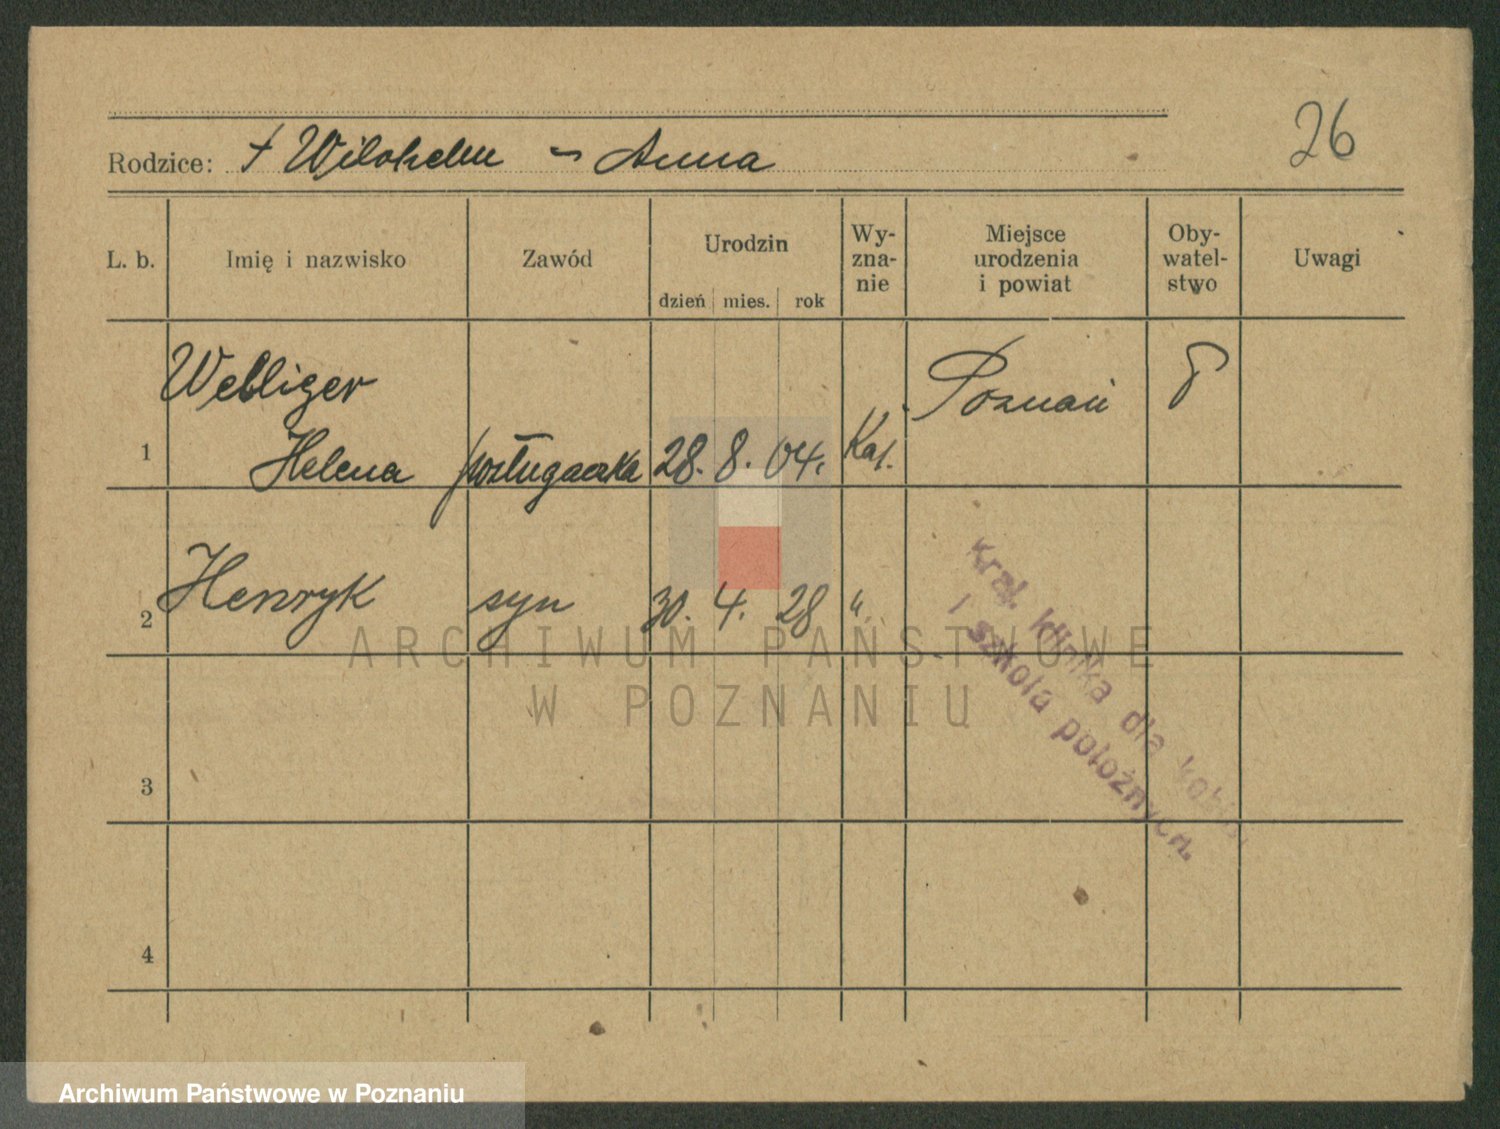 26
Rodzice: † Wilohelm – Anna
L. b. Imię i nazwisko Zawód Urodzin dzień mies. rok Wy-zna-nie Miejsce urodzenia i powiat Oby-watel-stwo Uwagi
Webliger Poznań
1 Helena posługaczka 28. 8. 04. Kat.
2 Henryk syn 30. 4. 28 "
Kraj. klinika dla kobiet
i szkoła położnych.
3
4
ARCHIWUM PAŃSTWOWE
W POZNANIU
Archiwum Państwowe w Poznaniu